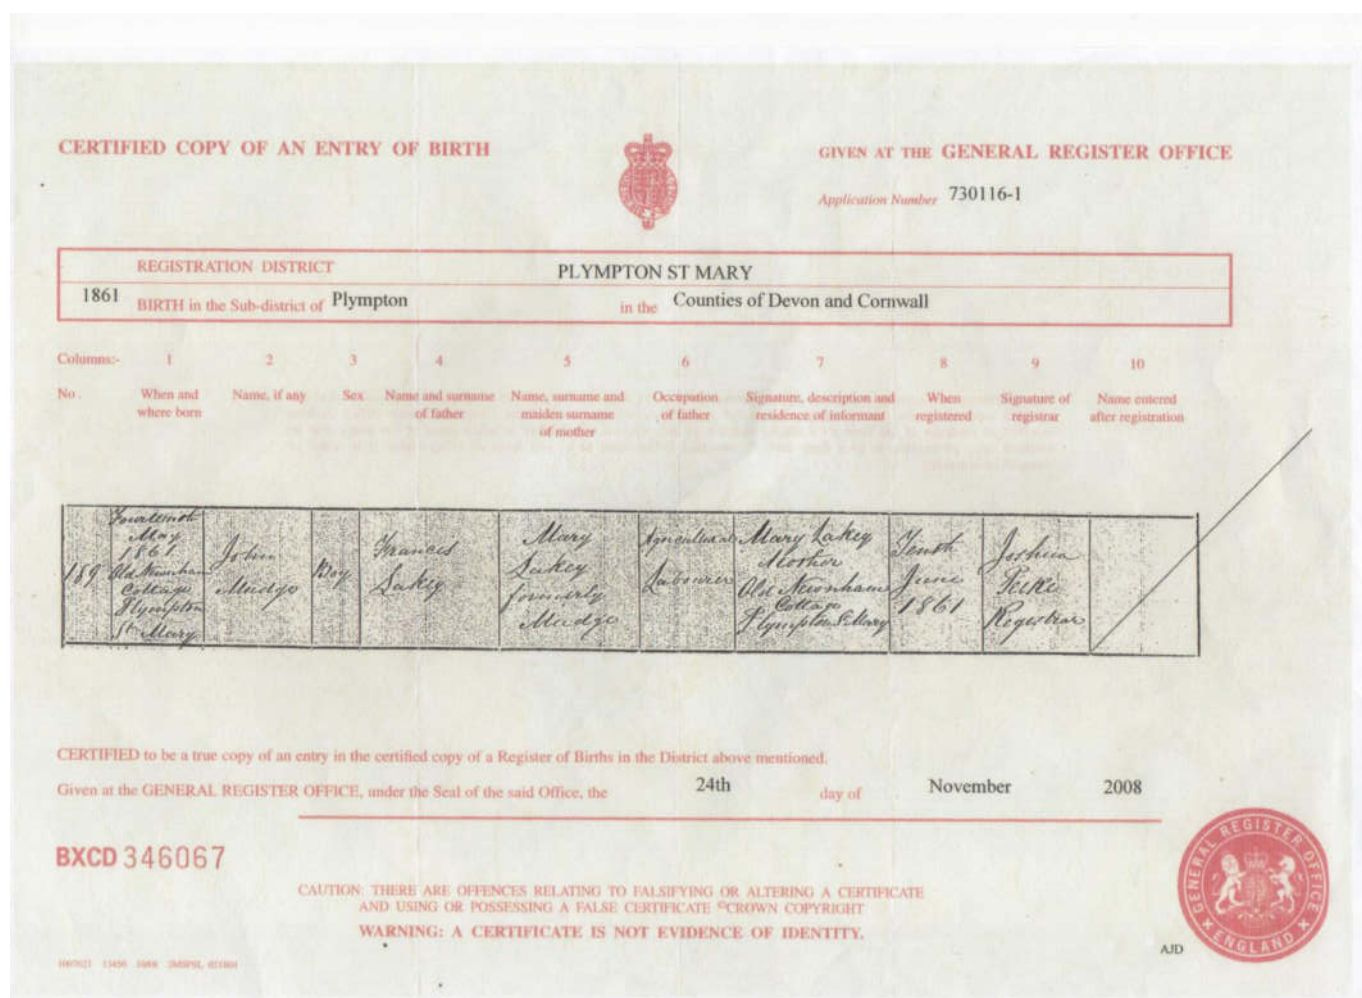 CERTIFIED COPY OF AN ENTRY OF BIRTH
GIVEN AT THE GENERAL REGISTER OFFICE
Application Number 730116-1
REGISTRATION DISTRICT PLYMPTON ST MARY
1861 BIRTH in the Sub-district of Plympton in the Counties of Devon and Cornwall
Columns:- 1 2 3 4 5 6 7 8 9 10
No. When and where born
Name, if any
Sex
Name and surname of father
Name, surname and maiden surname of mother
Occupation of father
Signature, description and residence of informant
When registered
Signature of registrar
Name entered after registration
189
Fourteenth
May
1861
Old Newnham
Cottage
Plympton
St. Mary
John
Mudge
Boy
Francis
Lakey
Mary
Lakey
formerly
Mudge
Agricultural
Labourer
Mary Lakey
Mother
Old Newnham
Cottage
Plympton St. Mary
Tenth
June
1861
Joshua
Registrar
CERTIFIED to be a true copy of an entry in the certified copy of a Register of Births in the District above mentioned.
Given at the GENERAL REGISTER OFFICE, under the Seal of the said Office, the 24th day of November 2008
BXCD 346067
CAUTION: THERE ARE OFFENCES RELATING TO FALSIFYING OR ALTERING A CERTIFICATE
AND USING OR POSSESSING A FALSE CERTIFICATE ©CROWN COPYRIGHT
WARNING: A CERTIFICATE IS NOT EVIDENCE OF IDENTITY.
GENERAL REGISTER OFFICE
ENGLAND
AJD